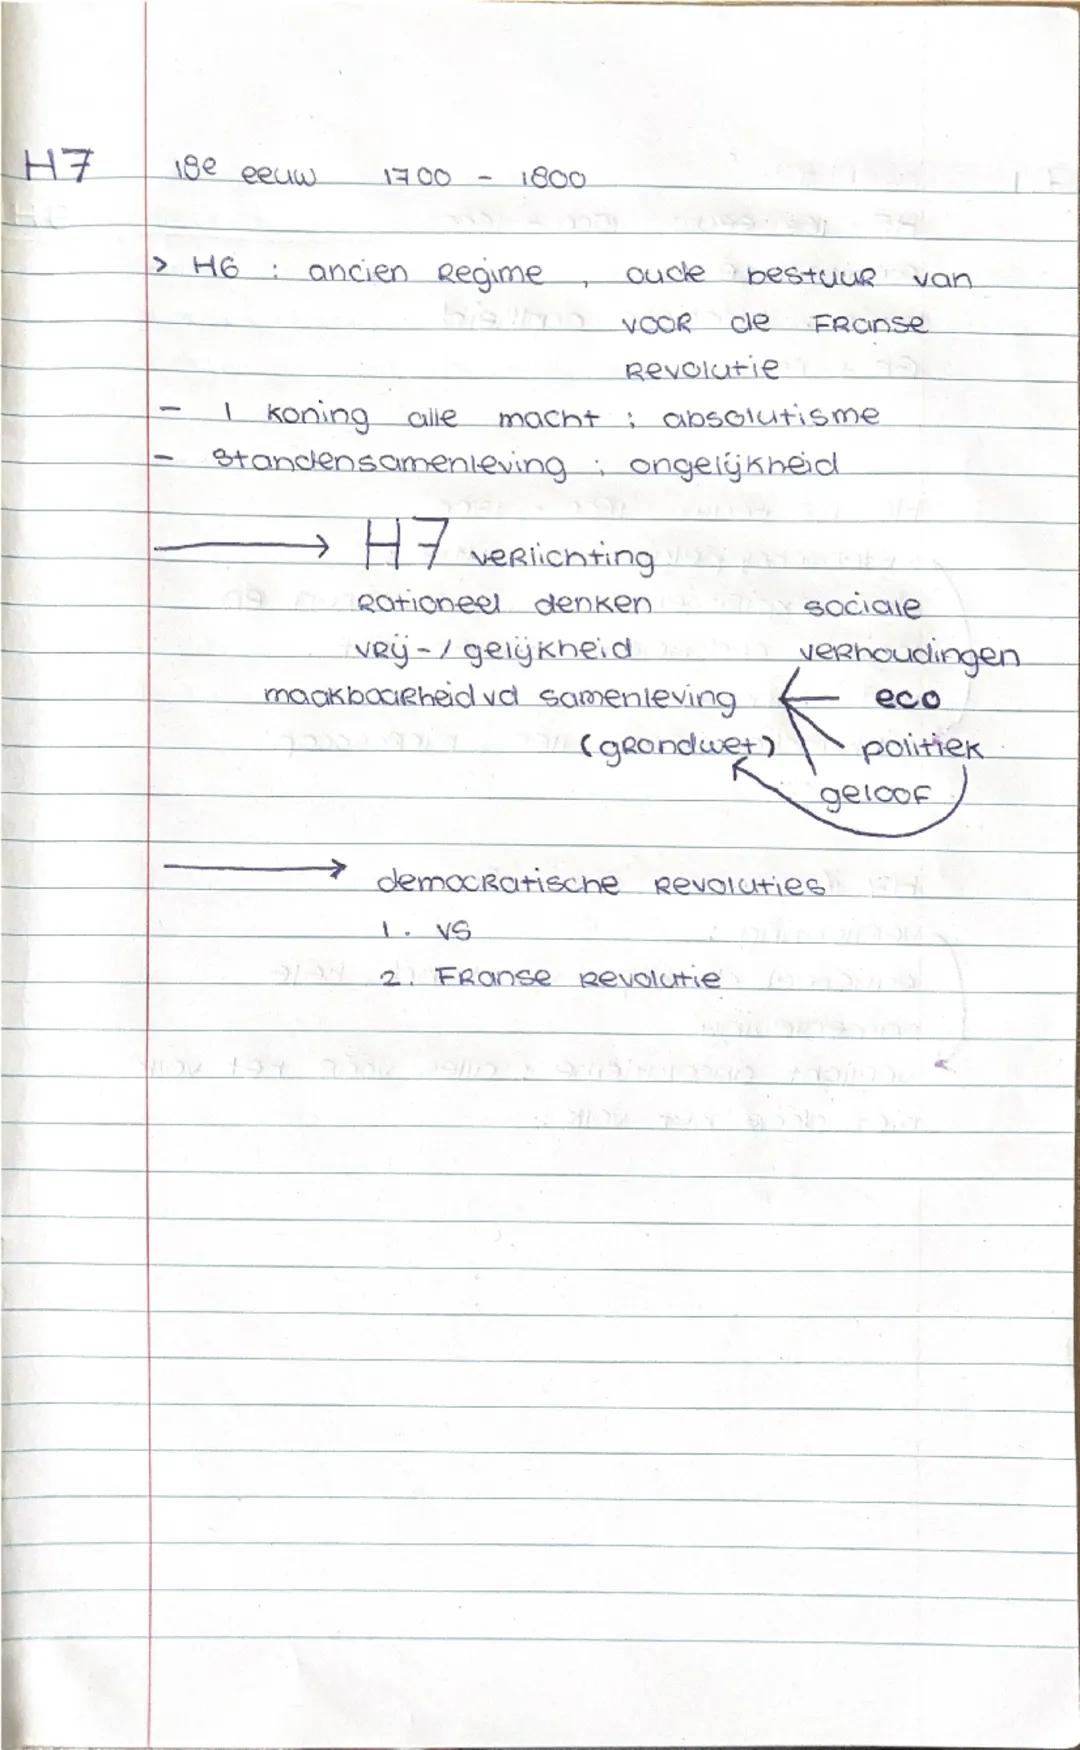 H7 18e eeuw 1700 - 1800
> H6 : ancien Regime , oude bestuur van
voor de Franse
Revolutie
- 1 koning alle macht : absolutisme
- Standensamenleving : ongelijkheid
→ H7 verlichting
Rationeel denken sociale
vrij-/gelijkheid verhoudingen
maakbaarheid vd samenleving eco
(grondwet) politiek
geloof
→ democratische Revoluties
1. VS
2. Franse Revolutie